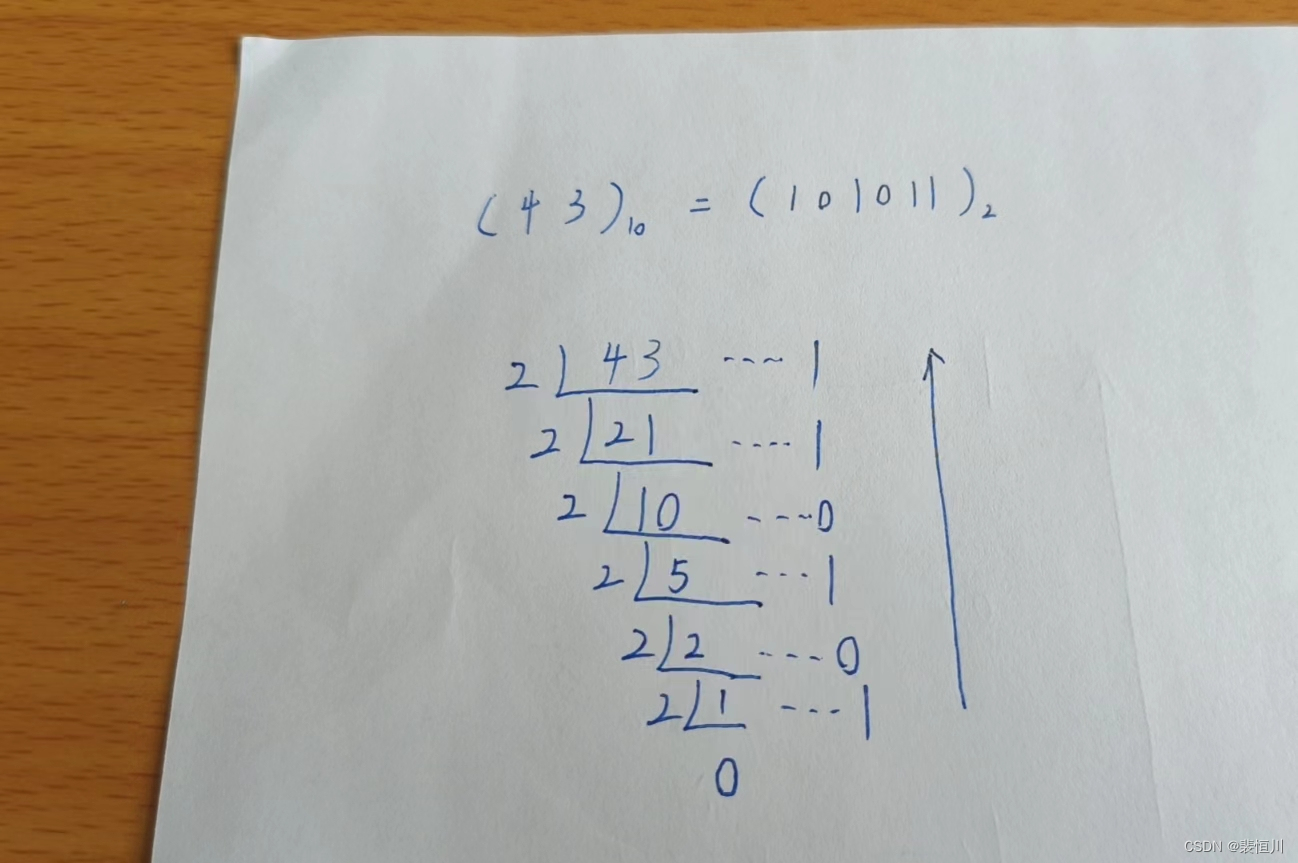 (43)₁₀ = (101011)₂
2 43 ---- 1
2 21 ---- 1
2 10 ---- 0
2 5 --- 1
2 2 ---- 0
2 1 ---- 1
0
CSDN @裴恒川